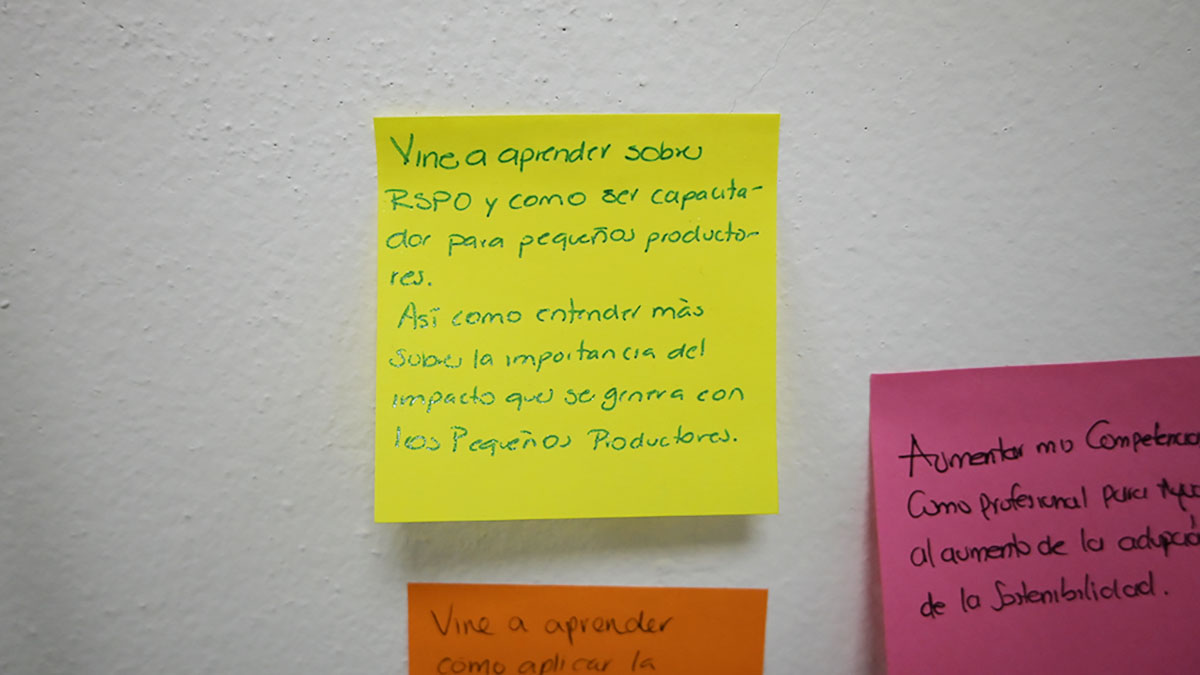 Vine a aprender sobre
RSPO y como ser capacita-
dor para pequeños producto-
res.
Así como entender más
sobre la importancia del
impacto que se genera con
los Pequeños Productores.
Aumentar mi Competencia
Como profesional para
al aumento de la adopción
de la Sostenibilidad.
Vine a aprender
cómo aplicar la